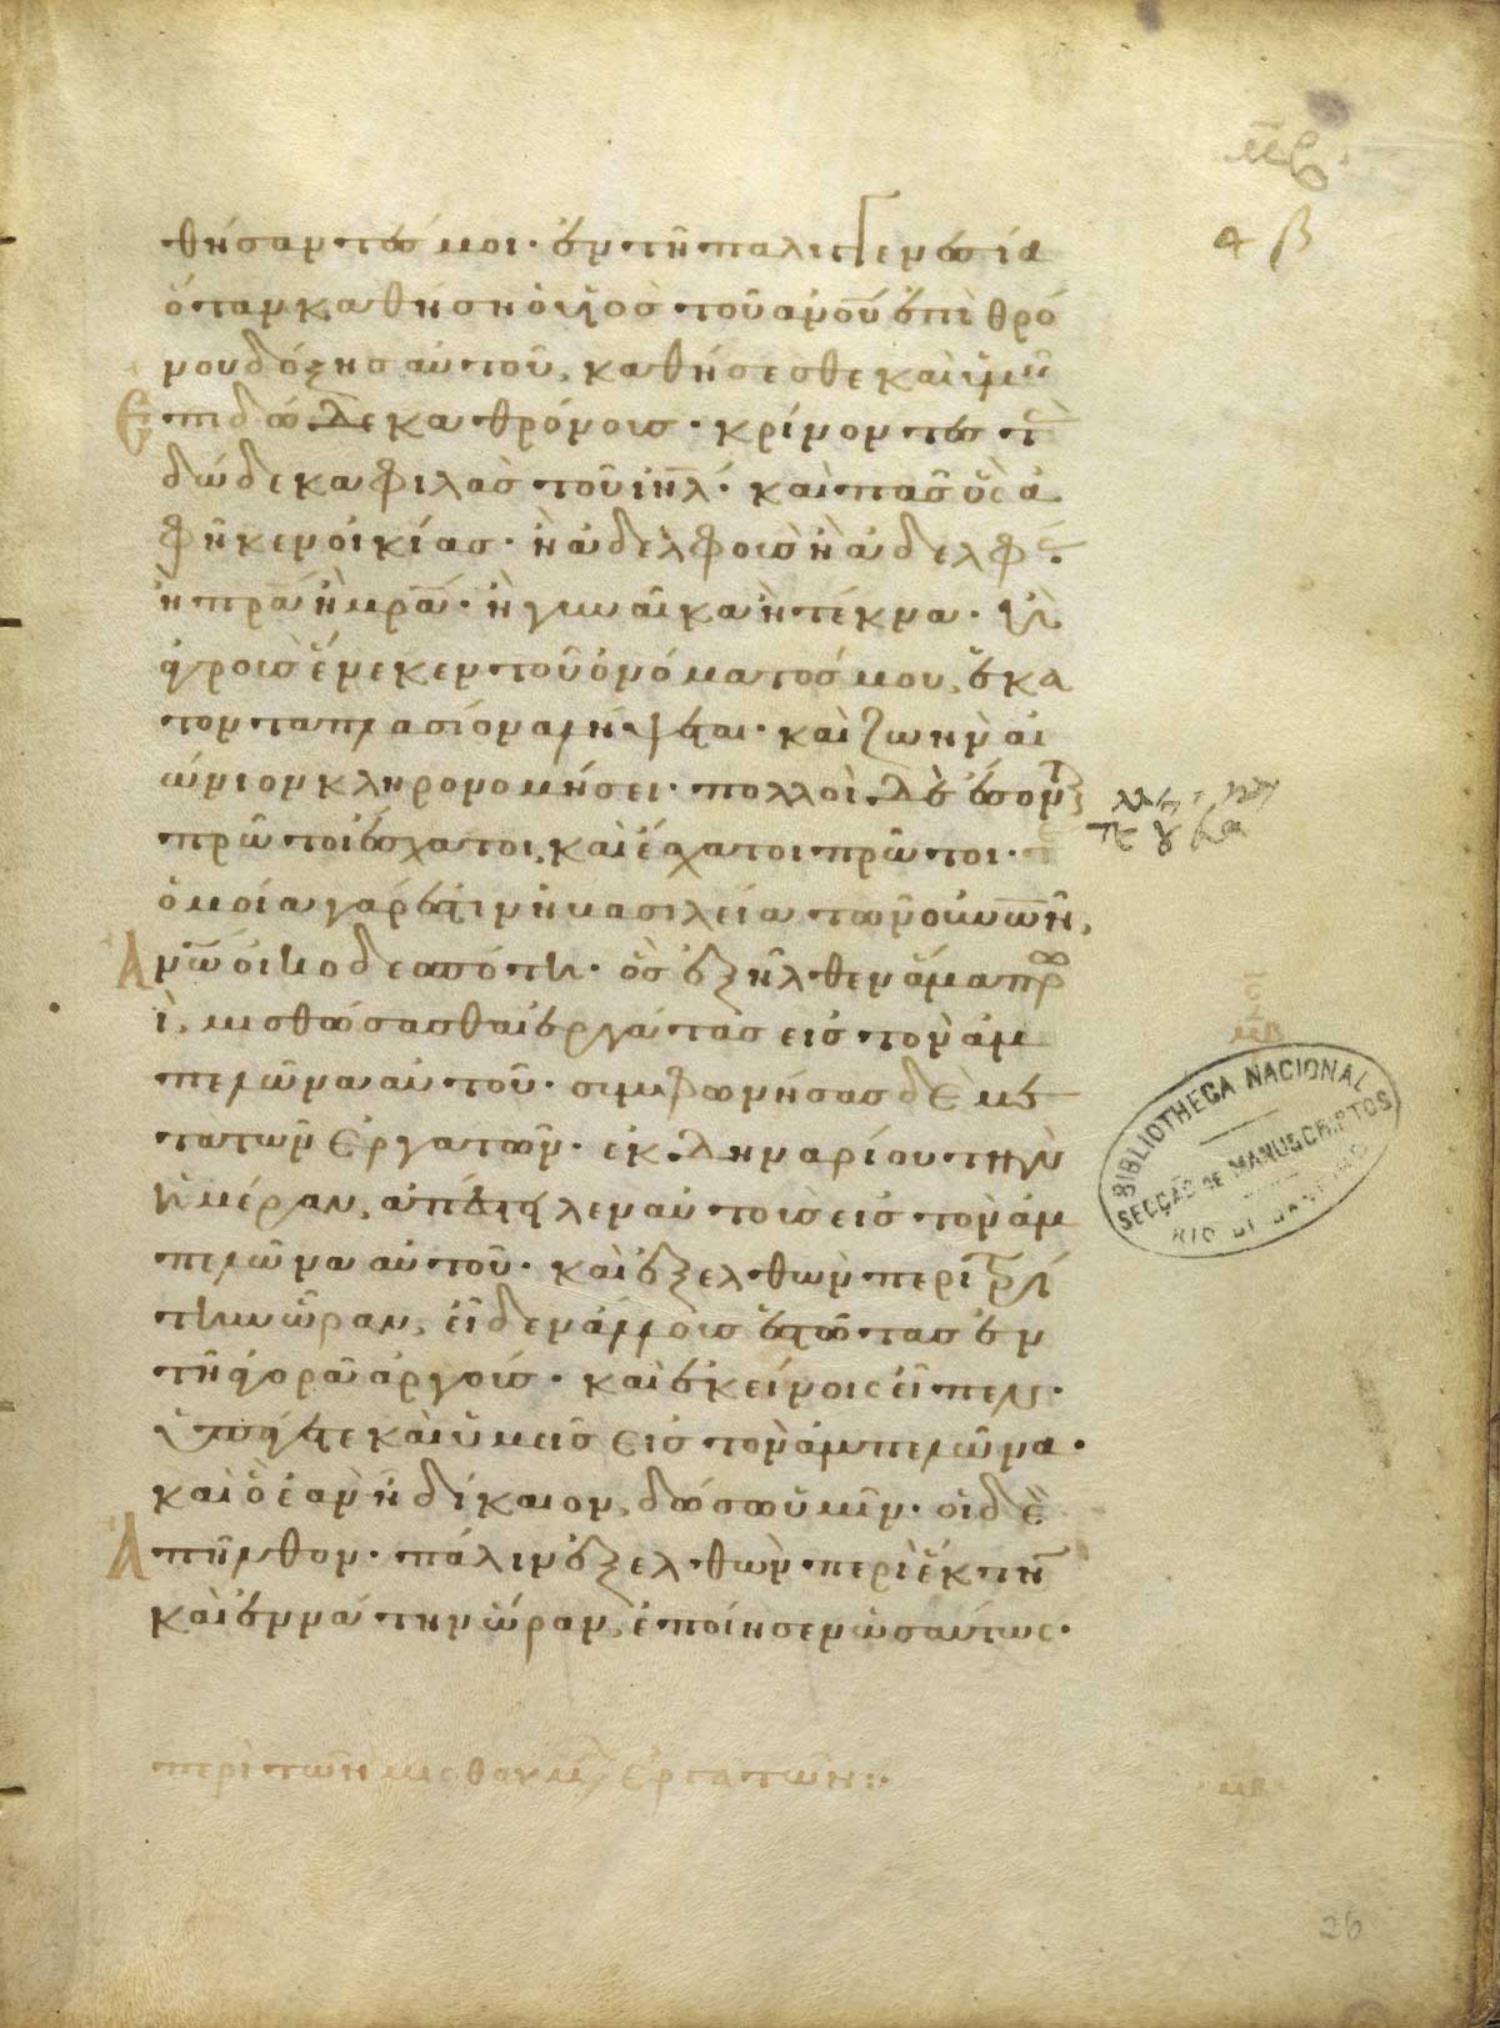 α β
θήσαντές μοι· ἐν τῆ παλιγγενεσία
ὅταν καθήση ὁ υἱὸς τοῦ ἀνου ἐπὶ θρό
νου δόξης αὐτοῦ, καθήσεσθε καὶ ὑμεῖς
ἐπὶ δώδεκα θρόνους· κρίνοντες τὰς
δώδεκα φυλὰς τοῦ ιηλ· καὶ πᾶς ὃς ἀ
φῆκεν οἰκίας· ἢ ἀδελφοὺς ἢ ἀδελφὰς·
ἢ πρα ἢ μρα· ἢ γυναῖκα ἢ τέκνα· ἢ
ἀγροὺς ἕνεκεν τοῦ ὀνόματός μου, ἑκα
τονταπλασίονα λήψεται· καὶ ζωὴν αἰ
ώνιον κληρονομήσει· πολλοὶ δὲ ἔσονται
πρῶτοι ἔσχατοι, καὶ ἔσχατοι πρῶτοι·
ὁμοία γάρ ἐστιν ἡ βασιλεία τῶν οὐνῶν,
ἀνω οἰκοδεσπότη· ὃς ἐξῆλθεν ἅμα πρω
ῒ, μισθώσασθαι ἐργάτας εἰς τὸν ἀμ
πελῶνα αὐτοῦ· συμφωνήσας δὲ με
τὰ τῶν ἐργατῶν· ἐκ δηναρίου τὴν
ἡμέραν, ἀπέστειλεν αὐτοὺς εἰς τὸν ἀμ
πελῶνα αὐτοῦ· καὶ ἐξελθὼν περὶ τρί
την ὥραν, εἶδεν ἄλλους ἑστῶτας ἐν
τῆ ἀγορᾶ ἀργούς· καὶ ἐκείνοις εἶπεν·
ὑπάγετε καὶ ὑμεῖς εἰς τὸν ἀμπελῶνα·
καὶ ὃ ἐὰν ἦ δίκαιον, δώσω ὑμῖν· οἱ δὲ
ἀπῆλθον· πάλιν ἐξελθὼν περὶ ἕκτην
καὶ ἐννάτην ὥραν, ἐποίησεν ὡσαύτως·
BIBLIOTHECA NACIONAL
SECÇÃO DE MANUSCRIPTOS
RIO DE JANEIRO
περὶ τῶν μισθουμένων ἐργατῶν:
26